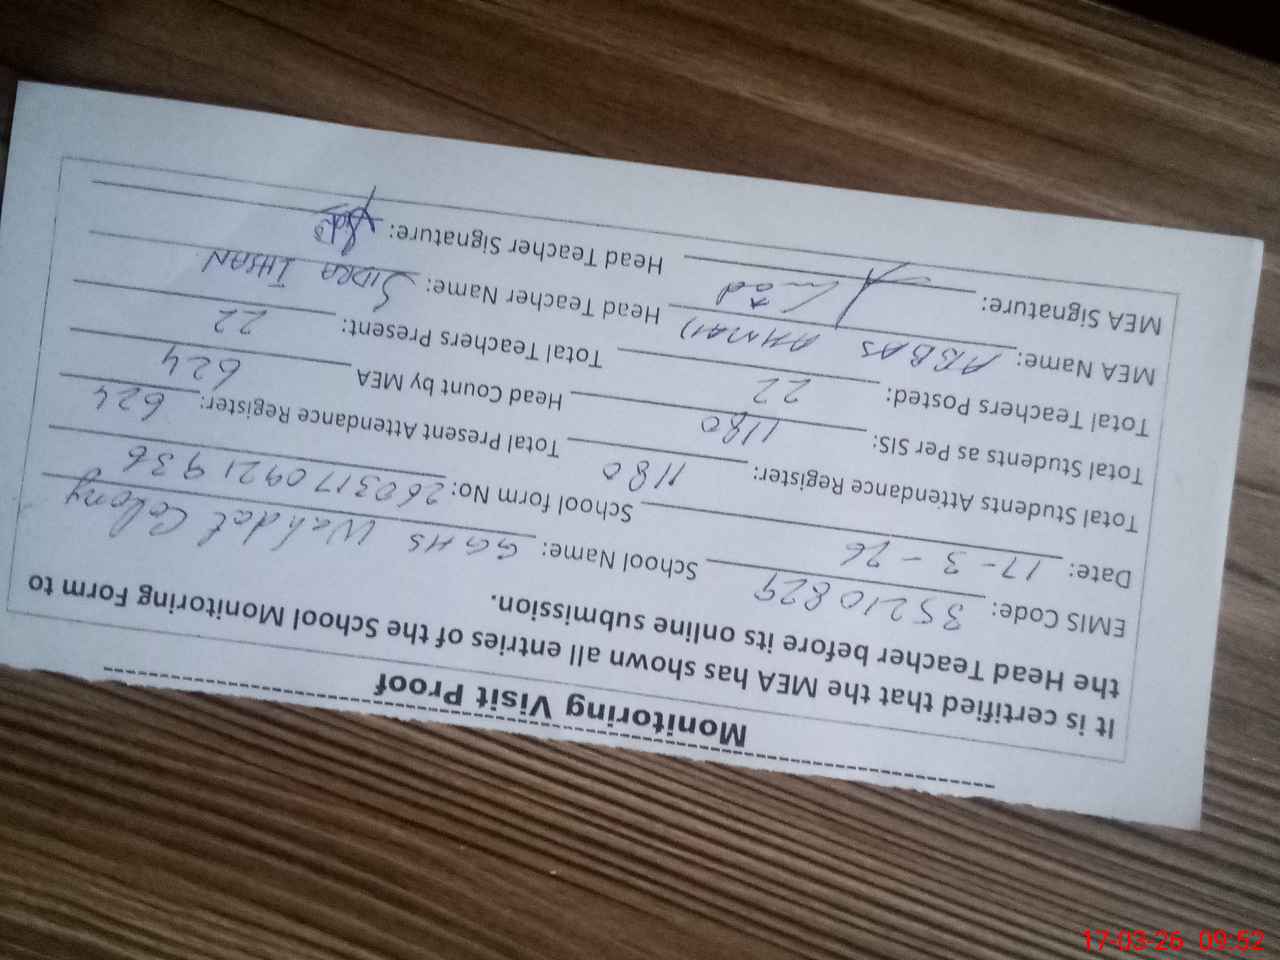 Monitoring Visit Proof
It is certified that the MEA has shown all entries of the School Monitoring Form to
the Head Teacher before its online submission.
EMIS Code: 35210829 School Name: GGHS Wahdat Colony
Date: 17-3-26 School form No: 260317092 1936
Total Students Attendance Register: 1180 Total Present Attendant Register: 624
Total Students as Per SIS: 1180 Head Count by MEA 624
Total Teachers Posted: 22 Total Teachers Present: 22
MEA Name: ABBAS AHMAD Head Teacher Name: SIDRA IHSAN
MEA Signature: Head Teacher Signature:
17-03-26 09:52